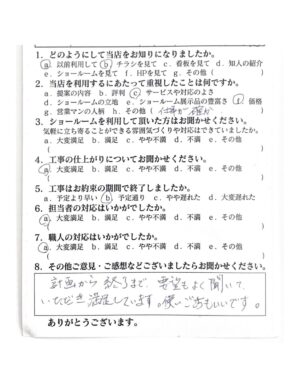 1. どのようにして当店をお知りになりましたか。
a 以前利用して b チラシを見て c 看板を見て d. 知人の紹介
e. ショールームを見て f. HPを見て g. その他 ( )
2. 当店を利用するにあたって重視したことは何ですか。
a. 提案の内容 b. 評判 c サービスや対応のよさ
d. ショールームの立地 e. ショールーム展示品の豊富さ f 価格
g. 営業マンの人柄 h. その他 ( )
3. ショールームを利用して頂いた方はお聞かせください。
気軽に立ち寄ることができる雰囲気づくりや対応はできていましたか。
a. 大変満足 b. 満足 c. やや不満 d. 不満 e. その他
( )
4. 工事の仕上がりについてお聞かせください。
a 大変満足 b. 満足 c. やや不満 d. 不満 e. その他
( )
5. 工事はお約束の期間で終了しましたか。
a. 予定より早い b 予定通り c. やや遅れた d. 大変遅れた
6. 担当者の対応はいかがでしたか。
a 大変満足 b. 満足 c. やや不満 d. 不満 e. その他
( )
7. 職人の対応はいかがでしたか。
a 大変満足 b. 満足 c. やや不満 d. 不満 e. その他
( )
8. その他ご意見・ご感想などございましたらお聞かせください。
計画から終了まで、要望もよく聞いて
いただき満足しています。使いごこちもいいです。
ありがとうございます。